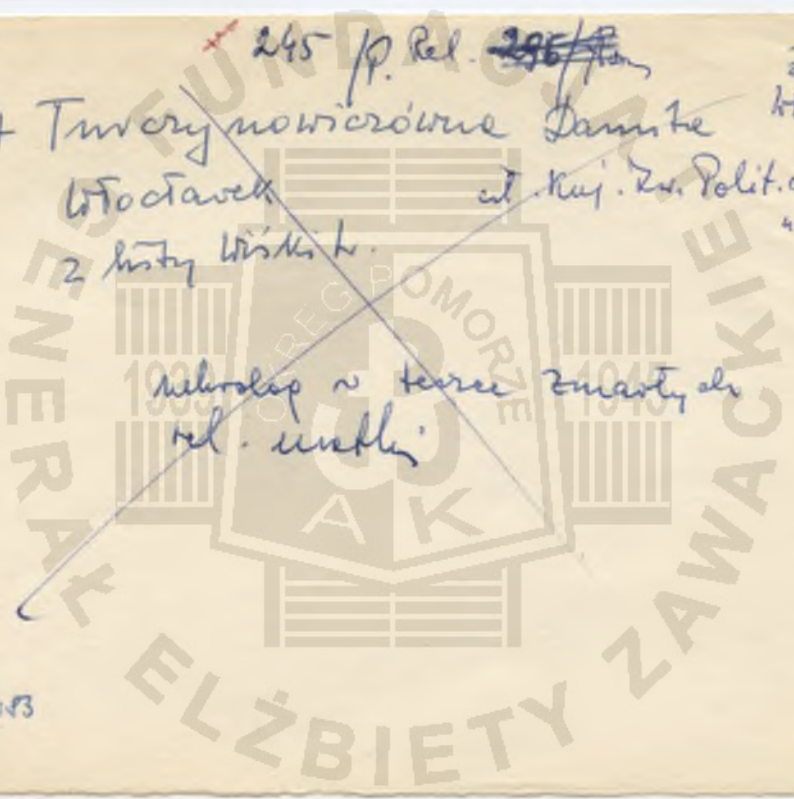 245 /P. Rel.
Turczynowiczówna Danuta
Włocławek
czł. Kuj. Zw. Polit.
z listy
nekrolog w teczce zmarłych
rel. matki
83
FUNDACJA GENERAŁ ELŻBIETY ZAWACKIEJ
OKRĘG POMORZE
1939
1945
AK